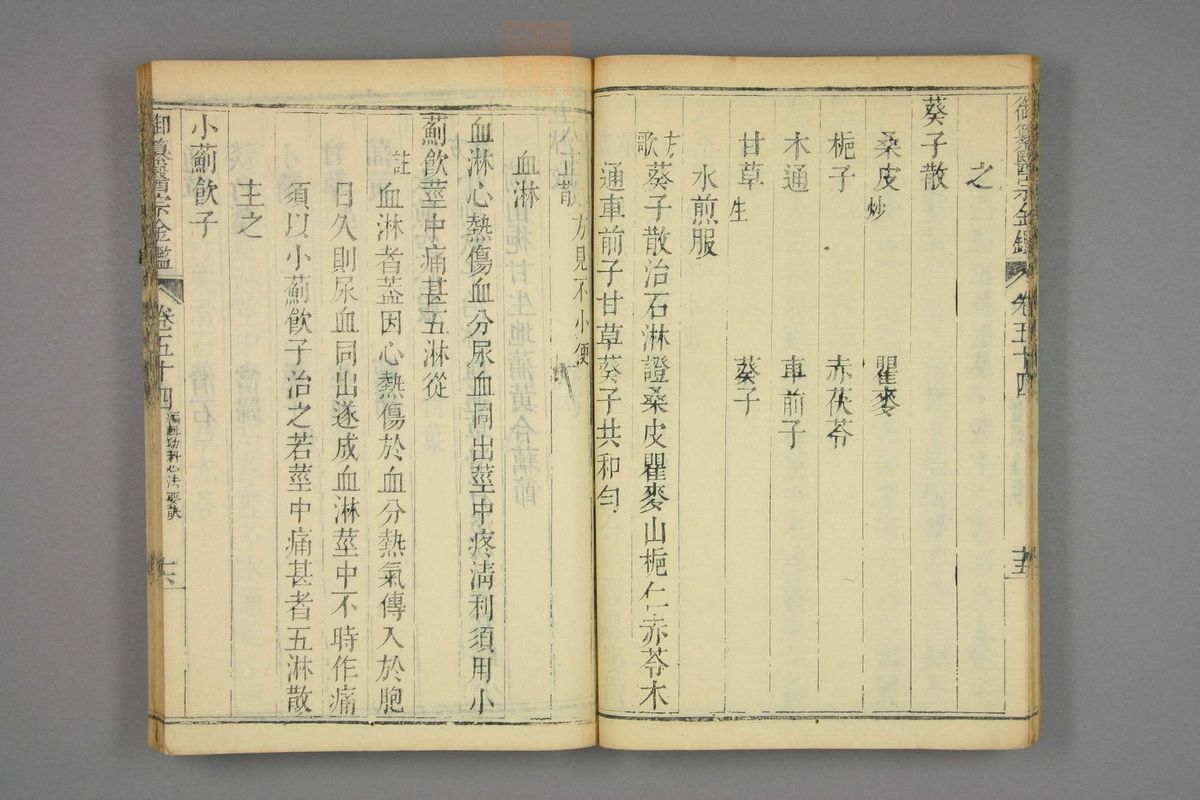 御纂醫宗金鑑 卷五十四 十五
之
葵子散
桑皮炒 瞿麥
梔子 赤茯苓
木通 車前子
甘草生 葵子
水煎服
方歌 葵子散治石淋證桑皮瞿麥山梔仁赤苓木
通車前子甘草葵子共和勻
八正散方見不小便
血淋
血淋心熱傷血分尿血同出莖中疼清利須用小
薊飲莖中痛甚五淋從
註 血淋者蓋因心熱傷於血分熱氣傳入於胞
日久則尿血同出遂成血淋莖中不時作痛
須以小薊飲子治之若莖中痛甚者五淋散
主之
小薊飲子
御纂醫宗金鑑 卷五十四 編輯幼科心法要訣 十六